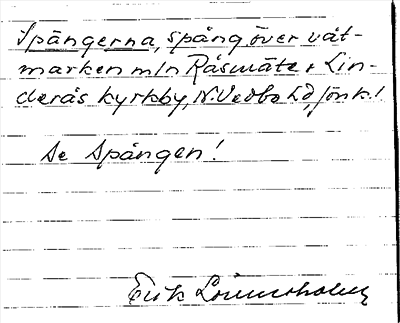 Spängerna, spång över våt-
marken mln Råsmäte & Lin-
derås kyrkby, N. Vedbo hd, Jönk. l.
Se Spången!
Erik